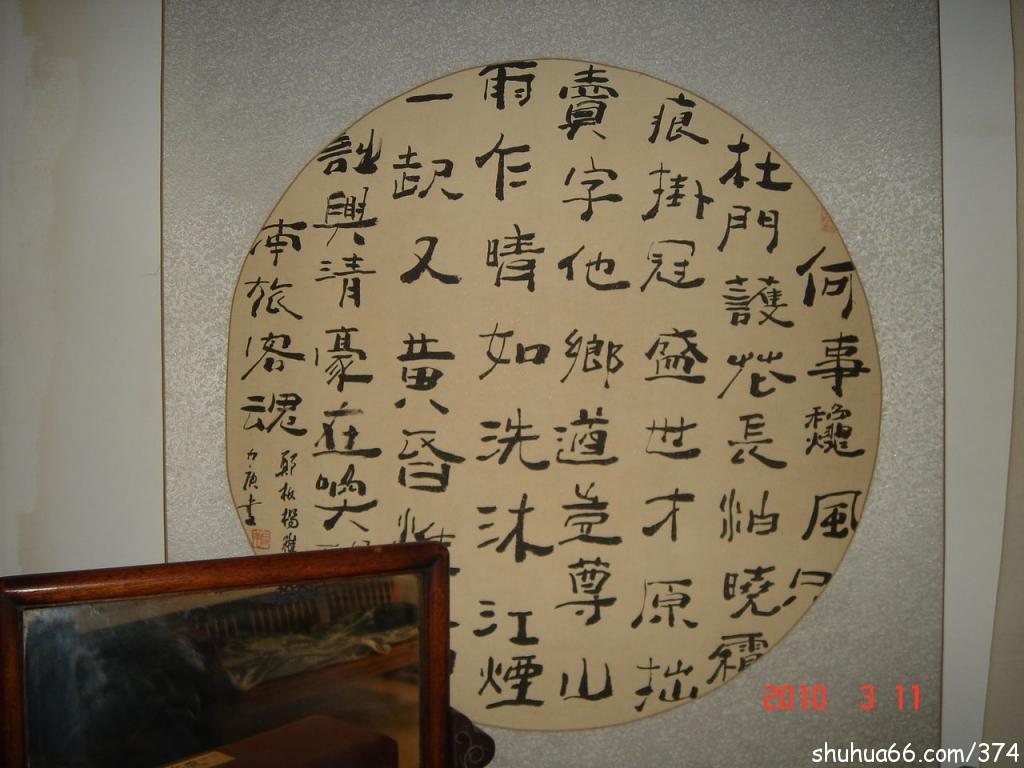 何事穐風只
杜門護花長怕曉霜
痕掛冠盛世才原拙
賣字他鄉道豈尊山
雨乍晴如洗沐江煙
一起又黄昏惟
詩興清豪在喚
南旅客魂
鄭板橋
力庚書
2010 3 11
shuhua66.com/374